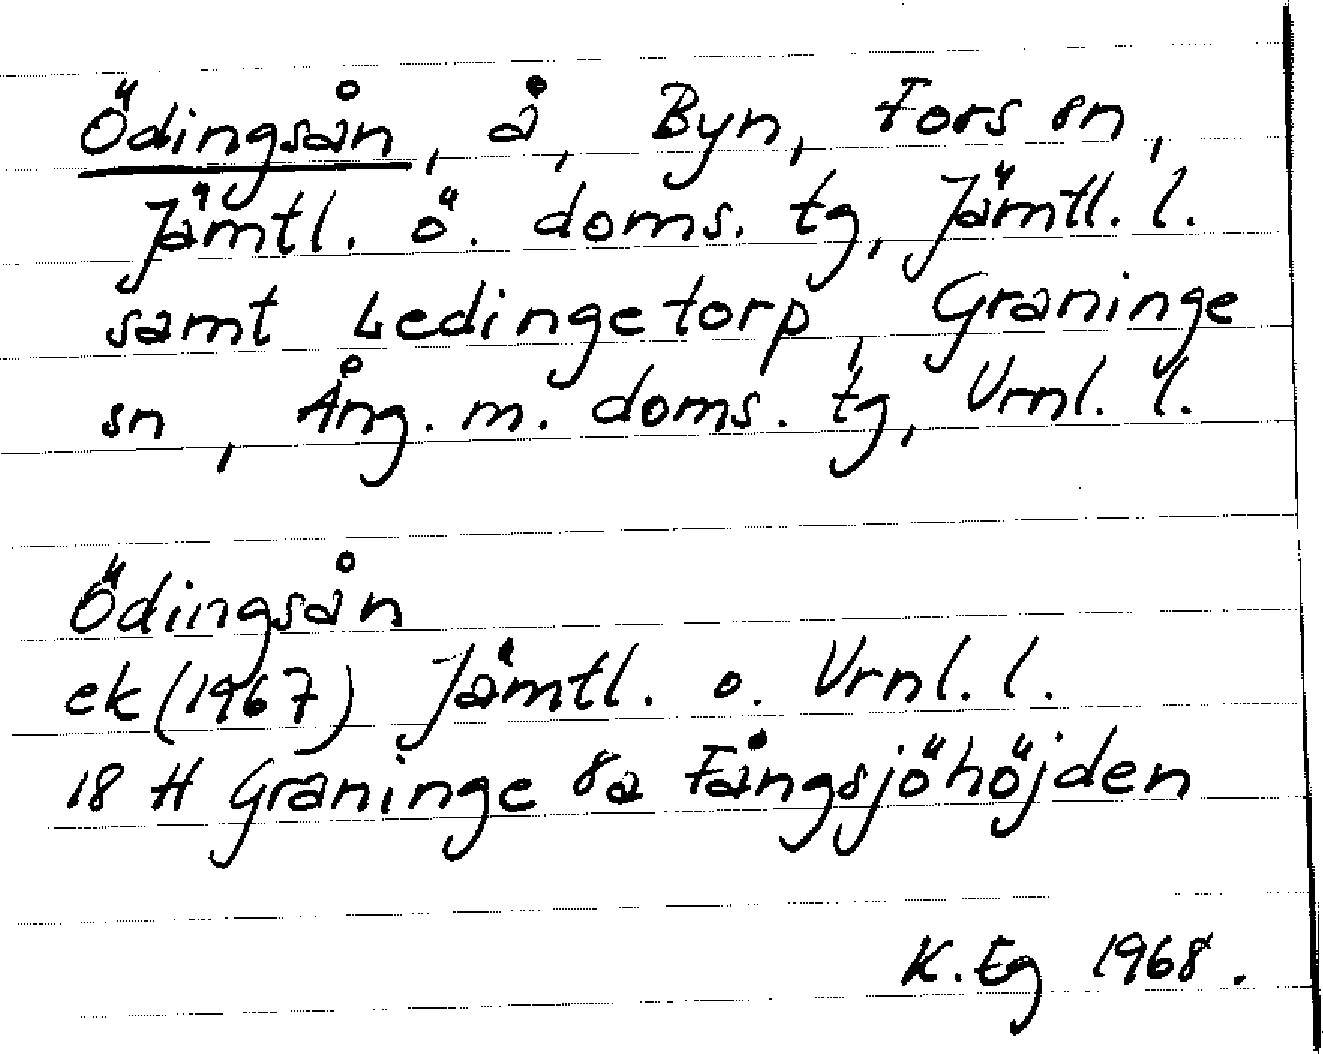 Ödingsån, å, Byn, Fors sn,
Jämtl. ö. doms. tg, Jämtl. l.
samt Ledingetorp, Graninge
sn, Ång. m. doms. tg, Vrnl. l.
Ödingsån
ek (1967) Jämtl. o. Vrnl. l.
18 H Graninge 8a Fångsjöhöjden
K. Eg 1968.